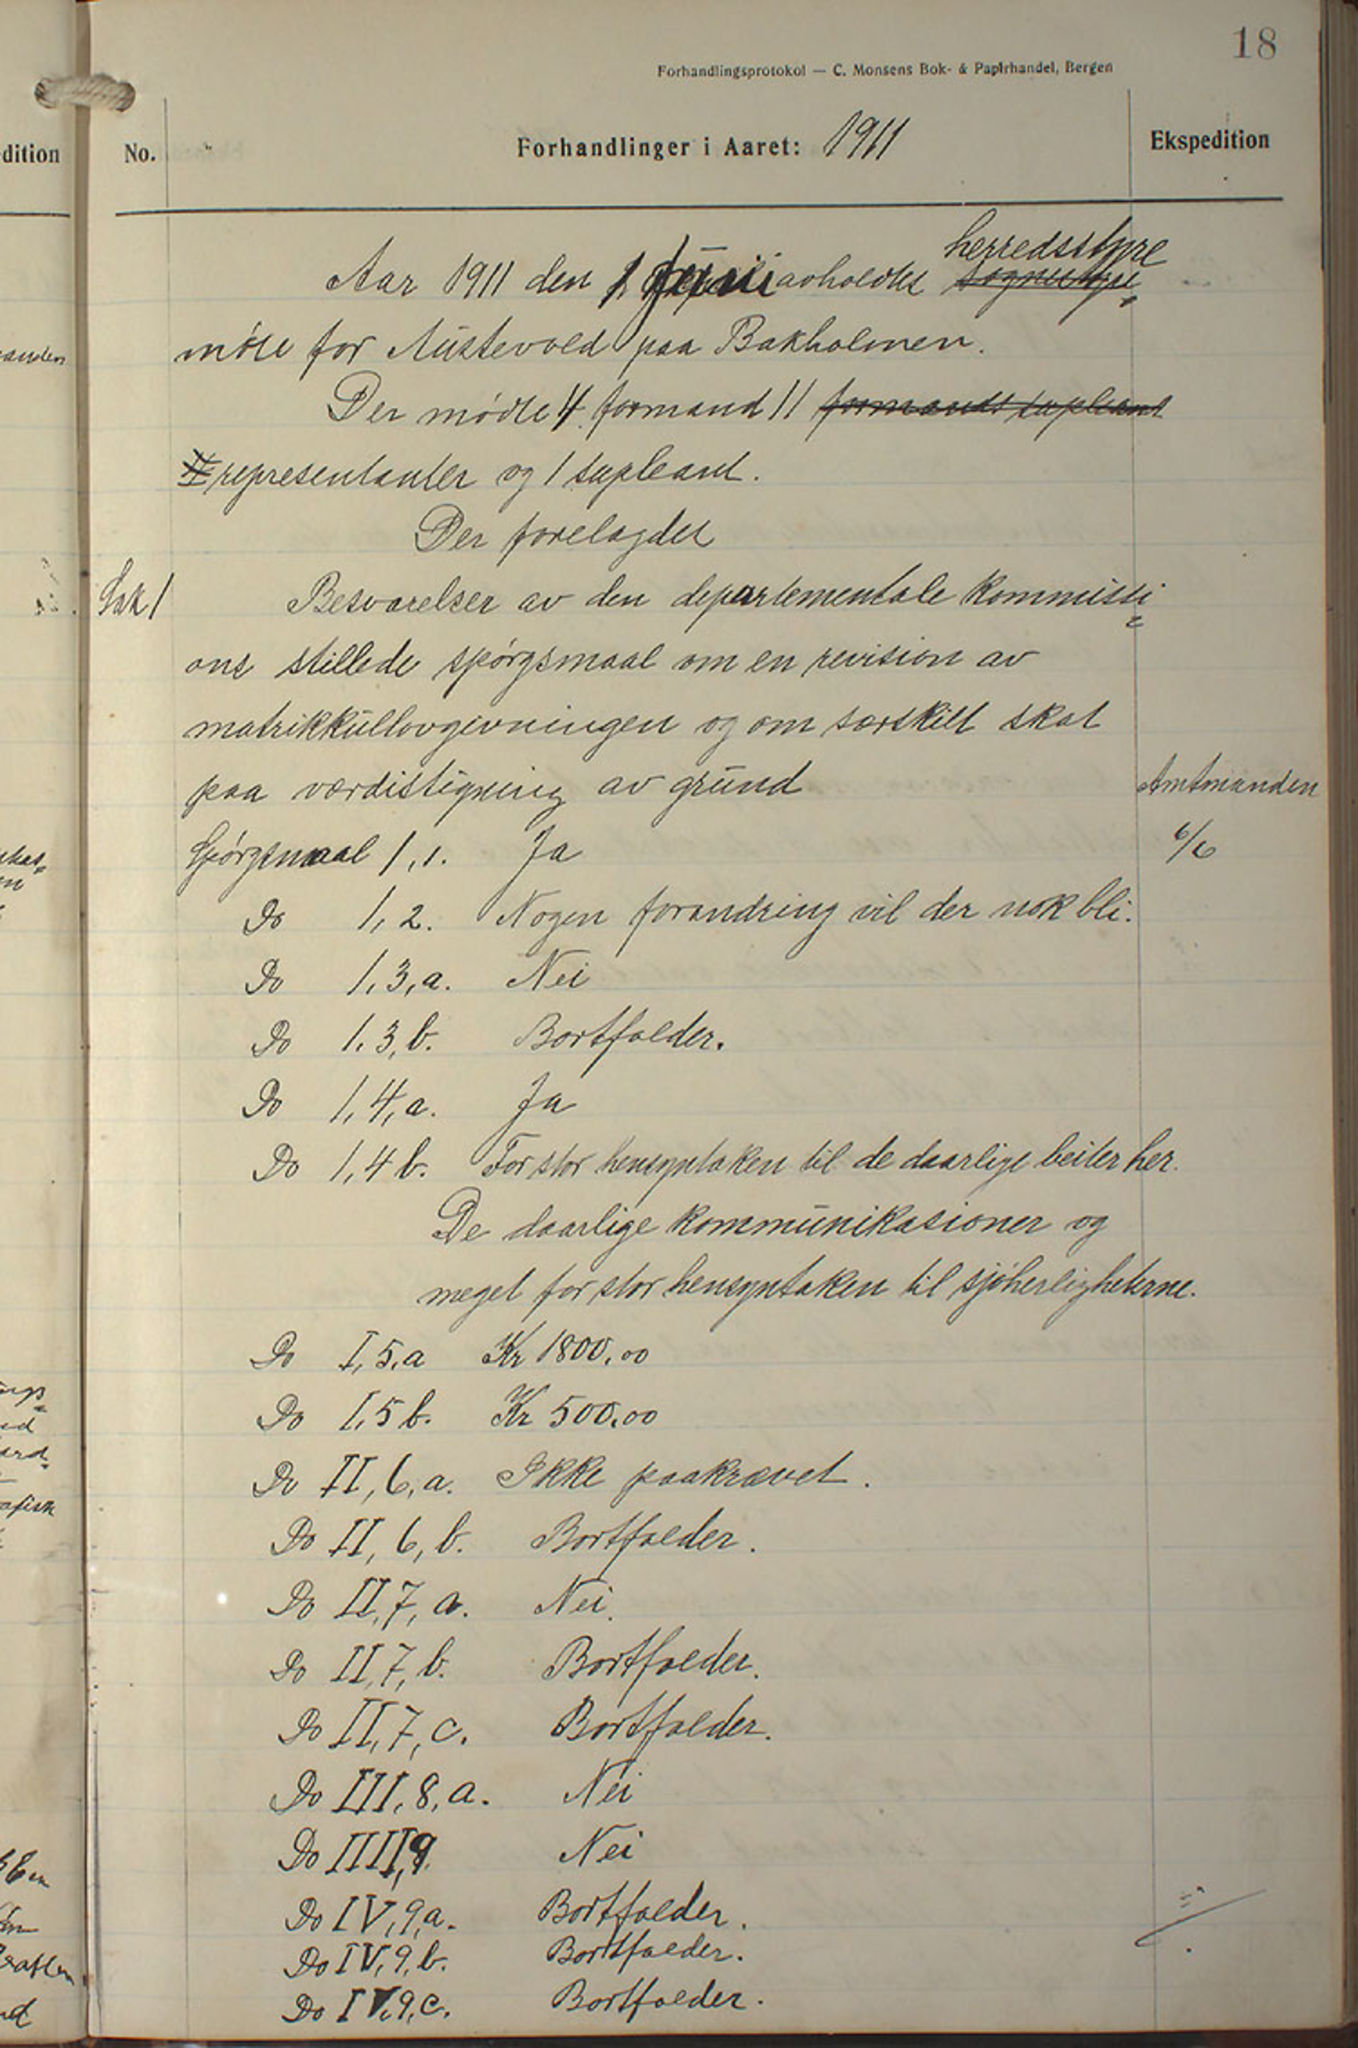 18
Forhandlingsprotokol — C. Monsens Bok- & Papirhandel, Bergen
dition No. Forhandlinger i Aaret: 1911 Ekspedition
herredsstyre
Aar 1911 den 1 juni avholdtes sognestyre
møte for Austevold paa Bakholmen.
Der mødte 4 formænd 11 formands supleant
representanter og 1 supleant.
Der forelagdes
Sak 1 Besvarelser av den departementale kommissi
ons stillede spørgsmaal om en revision av
matrikkullovgivningen og om særskilt skat
paa værdistigning av grund Amtmanden
Spørgsmaal 1,1. Ja 6/6
Do 1,2. Nogen forandring vil der nok bli.
Do 1,3,a. Nei
Do 1.3,b. Bortfalder.
Do 1,4,a. Ja
Do 1,4 b. For stor hensyntaken til de daarlige beiter her.
De daarlige kommunikasioner og
meget for stor hensyntaken til sjøherligheterne.
Do I,5,a Kr 1800,00
Do I,5 b. Kr 500,00
Do II,6,a. Ikke paakrævet.
Do II,6,b. Bortfalder.
Do II,7,a. Nei.
Do II,7,b. Bortfalder.
Do II,7,c. Bortfalder.
Do III,8,a. Nei
Do IIII,9. Nei
Do IV,9,a. Bortfalder.
Do IV,9,b. Bortfalder.
Do IV,9,c. Bortfalder.